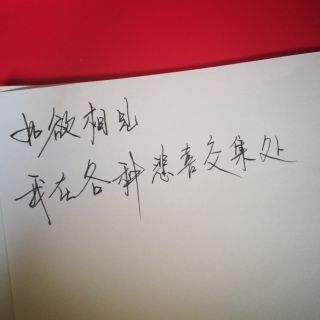 如欲相见
我在各种悲喜交集处